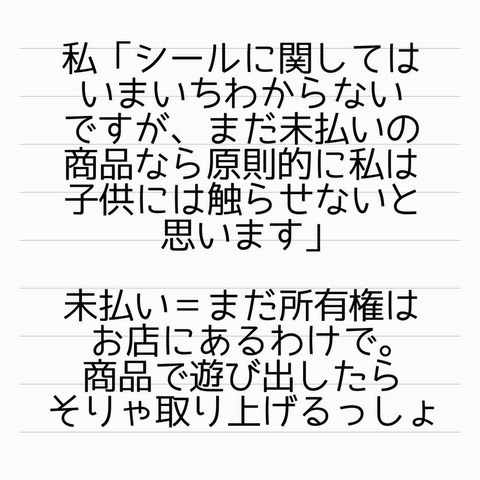 私「シールに関しては
いまいちわからない
ですが、まだ未払いの
商品なら原則的に私は
子供には触らせないと
思います」
未払い＝まだ所有権は
お店にあるわけで。
商品で遊び出したら
そりゃ取り上げるっしょ